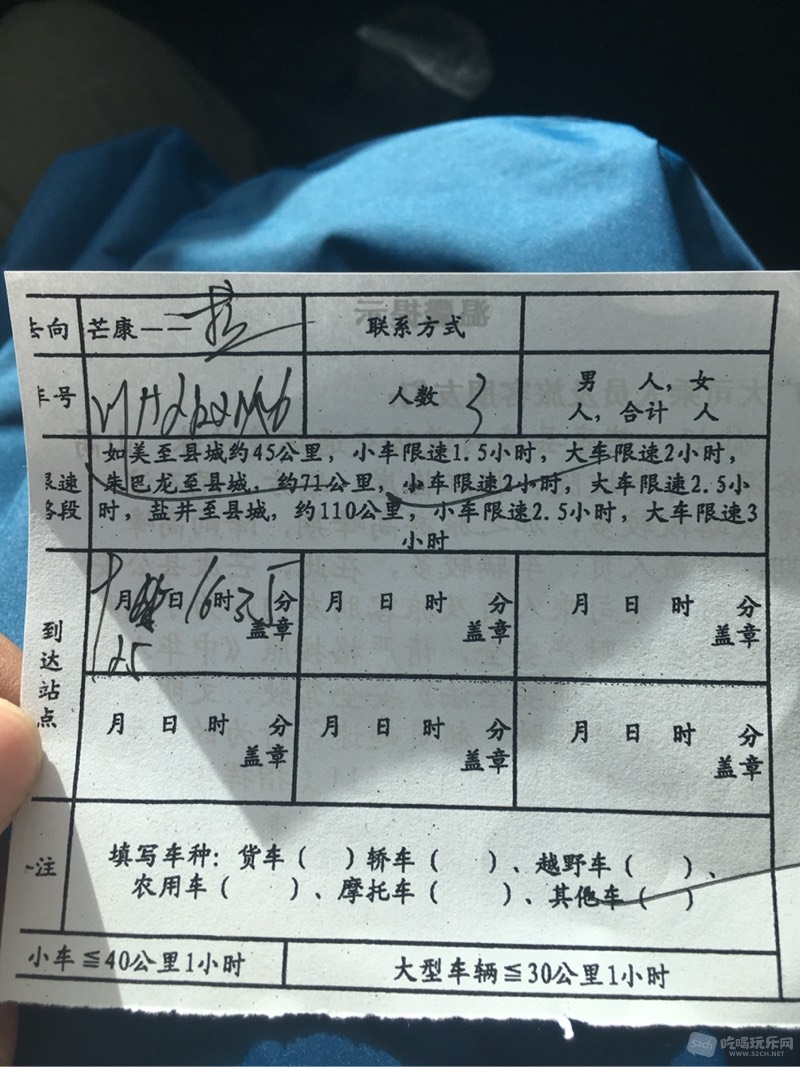 去向 芒康—— 联系方式
车号 人数 3 男 人,女
人,合计 人
如美至县城约45公里,小车限速1.5小时,大车限速2小时,
限速 朱巴龙至县城,约71公里,小车限速2小时,大车限速2.5小
路段 时,盐井至县城,约110公里,小车限速2.5小时,大车限速3
小时
月 日 16时35分 月 日 时 分 月 日 时 分
盖章 盖章 盖章
到达站点
25
月 日 时 分 月 日 时 分 月 日 时 分
盖章 盖章 盖章
注 填写车种:货车( )轿车( )、越野车( )、
农用车( )、摩托车( )、其他车( )
小车≦40公里1小时 大型车辆≦30公里1小时
吃喝玩乐网
www.szch.net